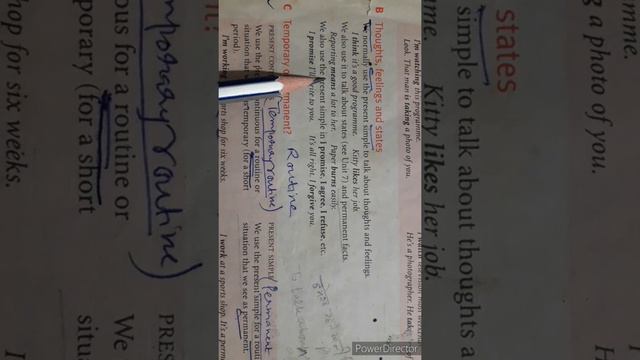 I'm watching this programme.
Look. That man is taking a photo of you.
He's a photographer. He takes
B Thoughts, feelings and states
We normally use the present simple to talk about thoughts and feelings.
I think it's a good programme. Kitty likes her job.
We also use it to talk about states (see Unit 7) and permanent facts.
Reporting means a lot to her. Paper burns easily.
We also use the present simple in I promise, I agree, I refuse, etc.
I promise I'll write to you. It's all right. I forgive you.
C Temporary or permanent?
Routine
PRESENT CON
(Temporary routine)
We use the present continuous for a routine or
situation that temporary (for a short
period).
I'm working sports shop for six weeks.
PRESENT SIMPLE (Permanent
We use the present simple for a routi
situation that we see as permanent.
I work at a sports shop. It's a perm
mme.
g a photo of you.
states
simple to talk about thoughts a
me. Kitty likes her job
mporary routine)
ous for a routine or
porary (for a short
hop for six weeks.
PRES
We
situ
PowerDirector